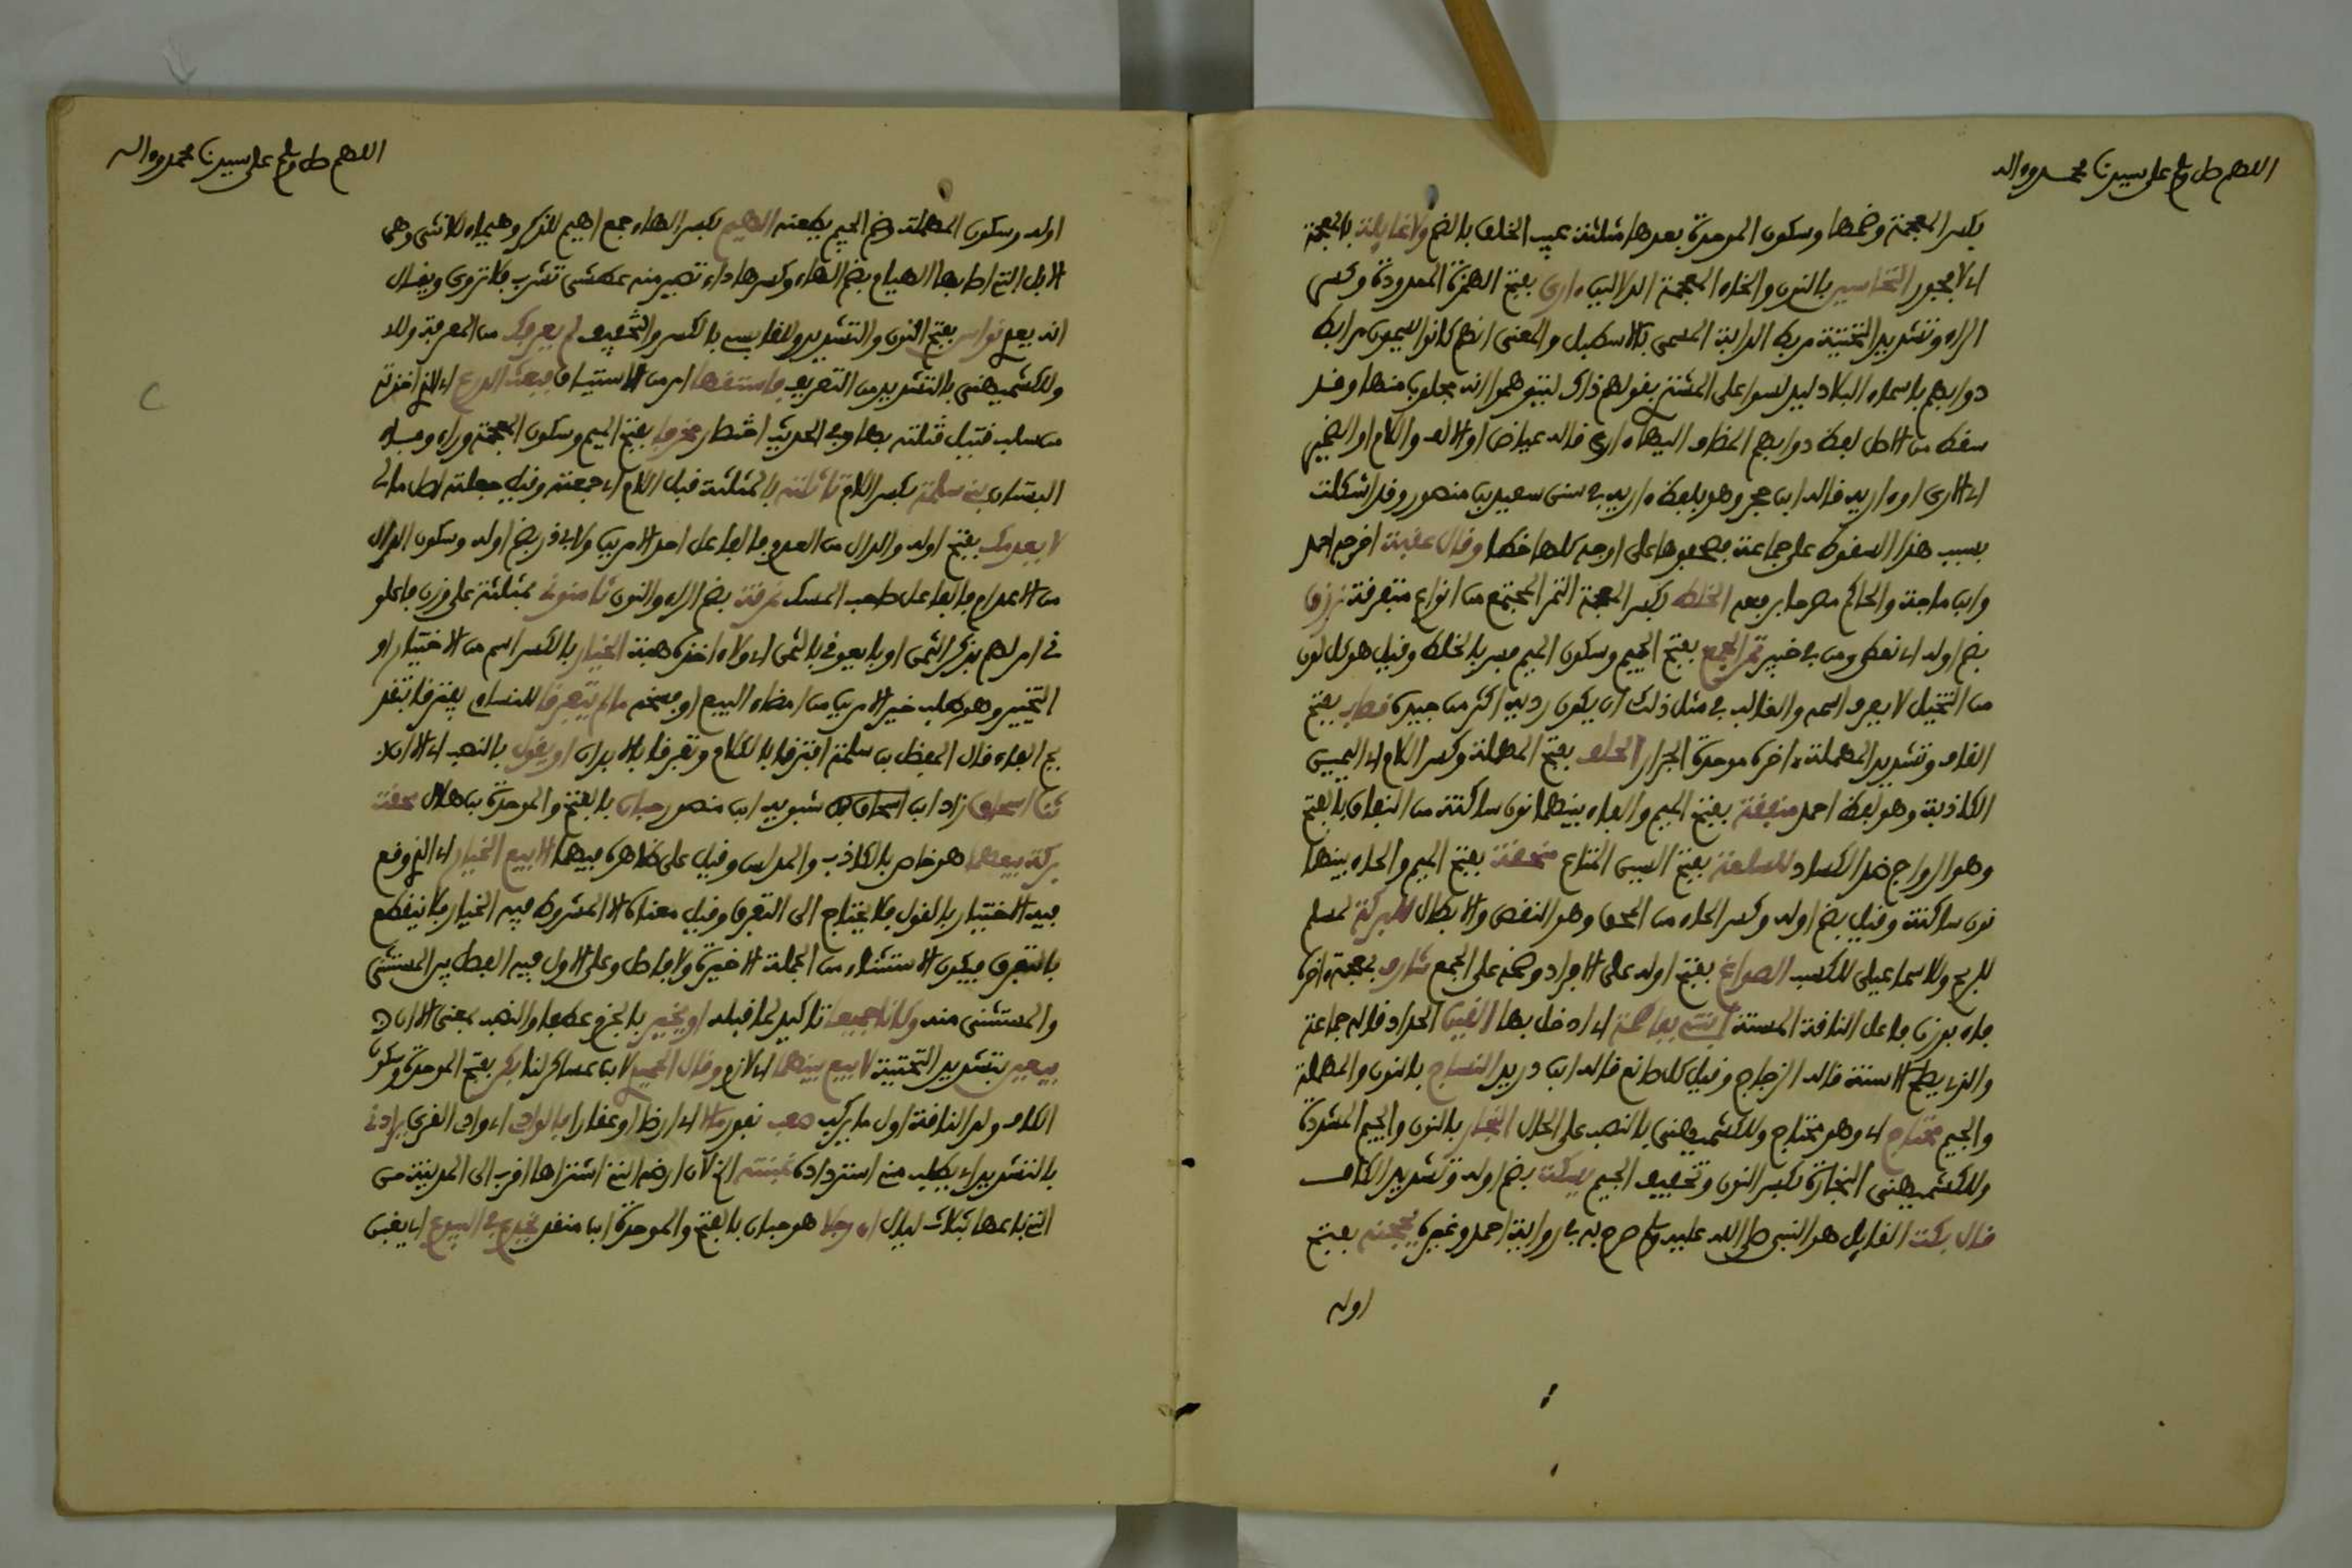 اللهم صل وسلم على سيدنا محمد وءاله
بكسر المعجمة وضمها وسكون الموحدة بعدها مثلثة عيب الخلق بالضم ولا غايلة بالمعجمة
أي لا فجور النخاسين بالنون والخاء المعجمة الدلالين ءارى بفتح الهمزة الممدودة وكسر
الراء وتشديد التحتية مربط الدابة المسمى بالاسطبل والمعنى انهم كانوا يسمون مرابط
دوابهم باسماء البلاد ليدلسوا على المشتري بقولهم ذلك ليتوهموا انه مجلوب منها وقد
سقط من الاصل لفظ دوابهم المضاف اليها ءارى قاله عياض او الالف واللام او الضمير
أي الارى او ءاريه قاله ابن حجر وهو بلفظ ءاريه في سنن سعيد بن منصور وقد اشكلت
بسبب هذا السقوط على جماعة فصحفوها على اوجه كلها خطا وقال عقبة اخرجه احمد
وابن ماجة والحاكم مصرحا برفعه الخلط بكسر المعجمة التمر المجتمع من انواع متفرقة نرزق
بضم اوله أي نعطى ومن في خيبر تمر الجمع بفتح الجيم وسكون الميم فسر بالخلط وقيل هو كل لون
من النخيل لا يعرف اسمه والغالب في مثل ذلك ان يكون رديه اكثر من جيده قصاب بفتح
القاف وتشديد المهملة ءاخره موحدة الجزار الحلف بفتح المهملة وكسر اللام أي اليمين
الكاذبة وهو لفظ احمد منفقة بفتح الميم والفاء بينهما نون ساكنة من النفاق بالفتح
وهو الرواج ضد الكساد للسلعة بفتح السين المتاع ممحقة بفتح الميم والحاء بينهما
نون ساكنة وقيل بضم اوله وكسر الحاء من المحق وهو النقص والابطال للبركة لمسلم
للربح وللاسماعيلي للكسب الصواغ بفتح اوله على الافراد وضمه على الجمع شارف بمعجمة ءاخره
فاء بوزن فاعل الناقة المسنة ابتني بفاطمة أي ادخل بها القين الحداد قاله جماعة
والذي يصلح الاسنة قاله الزجاج وقيل كل صانع قاله ابن دريد النساج بالنون والمهملة
والجيم محتاج أي وهو محتاج وللكشميهني بالنصب على الحال النجار بالنون والجيم المشددة
وللكشميهني النجارة بكسر النون وتخفيف الجيم يسكت بضم اوله وتشديد الكاف
قال بكت القايل هو النبي صلى الله عليه وسلم صرح به في رواية احمد وغيره يحجنه بفتح
اوله
اللهم صل وسلم على سيدنا محمد وءاله
اوله وسكون المهملة وضم الجيم يطعنه الهيم بكسر الهاء جمع اهيم للذكر وهيماء للانثى وهى
الابل التي اصابها الهيام بضم الهاء وكسرها داء تصير منه عطشى تشرب فلا تروى ويقال
انه يعم نواس بفتح النون والتشديد وللقابسي بالكسر والتخفيف لم يعرفك من المعرفة وللا
وللكشميهني بالتشديد من التعريف فاستقها امر من الاستياق فبعت الدرع أي الذي اخذته
من سلب قتيل قتلته بها وفي الحديث اختصار مخرفا بفتح الميم وسكون المعجمة وراء وفاء
البستان بني سلمة بكسر اللام تاثلته بالمثلثة قبل اللام أي جمعته وقيل جعلته اصل مالي
لا يعدمك بفتح اوله والدال من العدم فالفاعل احد الامرين ولابي ذر بضم اوله وسكون الدال
من الاعدام فالفاعل صاحب المسك غرفة بضم الراء والنون ثامنوني بمثلثة على وزن فاعلو
ني امر لهم بذكر الثمن او بايعوني بالثمن أي ولاء اخذه هبة الخيار بالكسر اسم من الاختيار او
التخيير وهو طلب خير الامرين من امضاء البيع او فسخه ما لم يتفرقا للنساي يفترقا بتقد
يم الفاء قال المفضل بن سلمة افترقا بالكلام وتفرقا بالابدان او يقول بالنصب أي الا ان
ثنا اسحاق زاد ابن شبويه ابن منصور حبان بالفتح والموحدة بن هلال محقت
بركة بيعهما هو خاص بالكاذب والمدلس وقيل على ظاهره فيهما الا بيع الخيار أي الذي وقع
فيه الاختيار بالقول فلا يحتاج الى التفرق وقيل معناه الا المشروط فيه الخيار فلا ينقطع
بالتفرق فيكون الاستثناء من الجملة الاخيرة ولا فاصل وعلى الاول فيه الفصل بين المستثنى
والمستثنى منه وكانا جميعا تاكيد لما قبله او يخير بالجزم عطفا والنصب بمعنى الا ان
بيعين بتشديد التحتية لا بيع بينهما أي لازم وقال الحميدي لابن عساكر لنا بكر بفتح الموحدة وسكون
الكاف ولد الناقة اول ما يركب صعب نفور مالا أي ارضا او عقارا بالوادي أي وادى القرى يرادني
بالتشديد أي يطلب مني استرداده غبنته الخ لان ارضه التي اشتراها اقرب الى المدينة من
التي باعها بثلاث ليال ان رجلا هو حبان بالفتح والموحدة ابن منقذ يخدع في البيوع أي يغبن